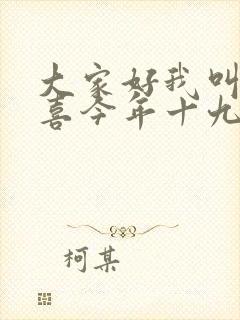 大家好我叫
喜今年十九
柯某